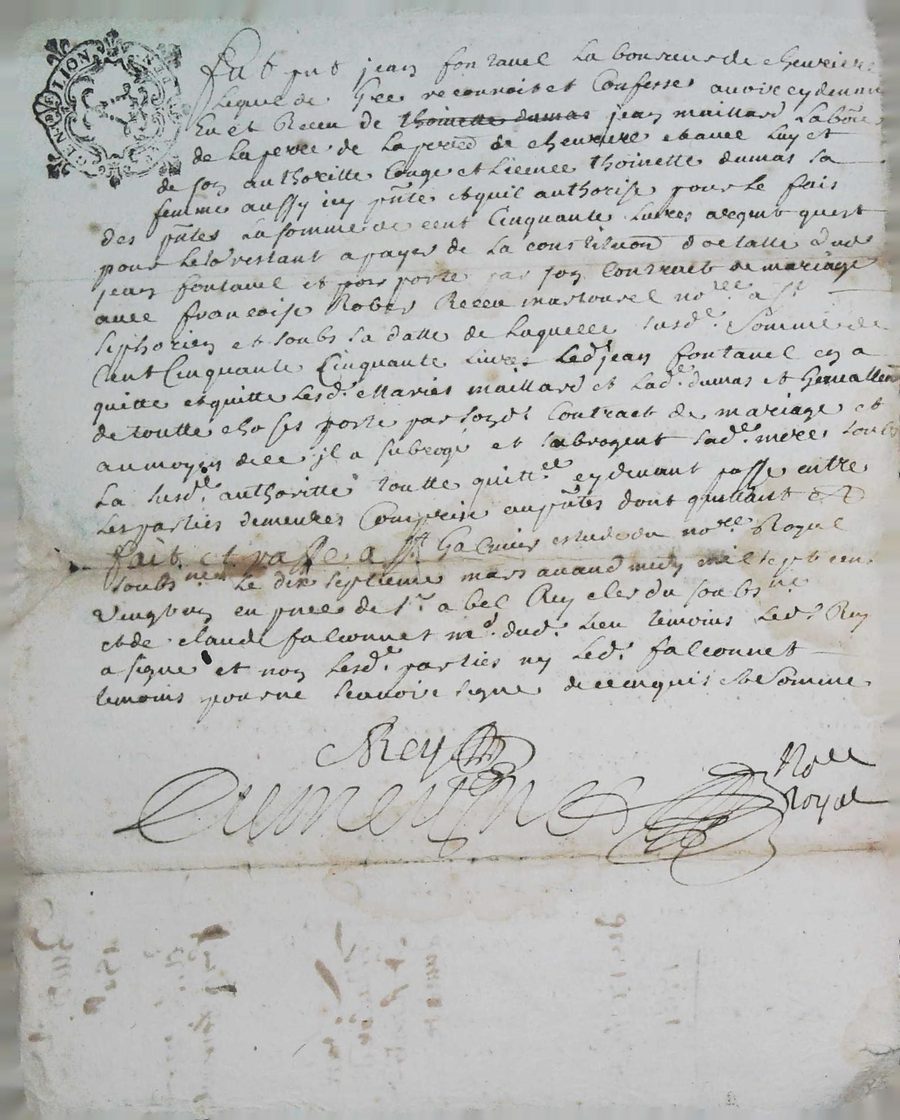 GEN DE LION
fut pnt jean fontanel laboureur de chevrieres
lequel de gré reconnoit et confesse avoir cydevant
Eu et Receu de thoinette dumas jean maillard labour
de la perre de la parr de chevriere et avec luy et
de son authoritté Conge et licence thoinette dumas sa
femme aussy icy pnte et quil authorise pour le fais
des pntes la somme de cent cinquante livres argent quest
pour le restant a payer de la constituon dotalle dud
jean fontanel et porporté par son Contract de mariage
avec francoise Robert Receu no.re a St
siphorien et soubs sa datte de laquelle susd. somme de
Cent Cinquante Cinquante livres led. jean fontanel en a
quitté et quitte lesd. mariés maillard et lad. dumas et generallem
de toutte choses porté par sond. Contract de mariage et
au moyen dece il a subrogé et subrogent sad. mere soubs
la susd. authoritté toutte quitt.ce cydevant passé entre
les parties demeures Comprise en pntes dont quittant
fait et passé a St Galmier estude du no.re Royal
soubs.né le dix septieme mars avand midy mil sept cens
vingt en pnce de s.r abel Rey clerc du soubs.né
et de claude falconnet m.d dud. lieu temoins led. s.r Rey
a signé et non lesd. parties ny led. falconnet
temoins pour ne scavoir signé de ce enquis et sommé
Rey
No.re
Royal